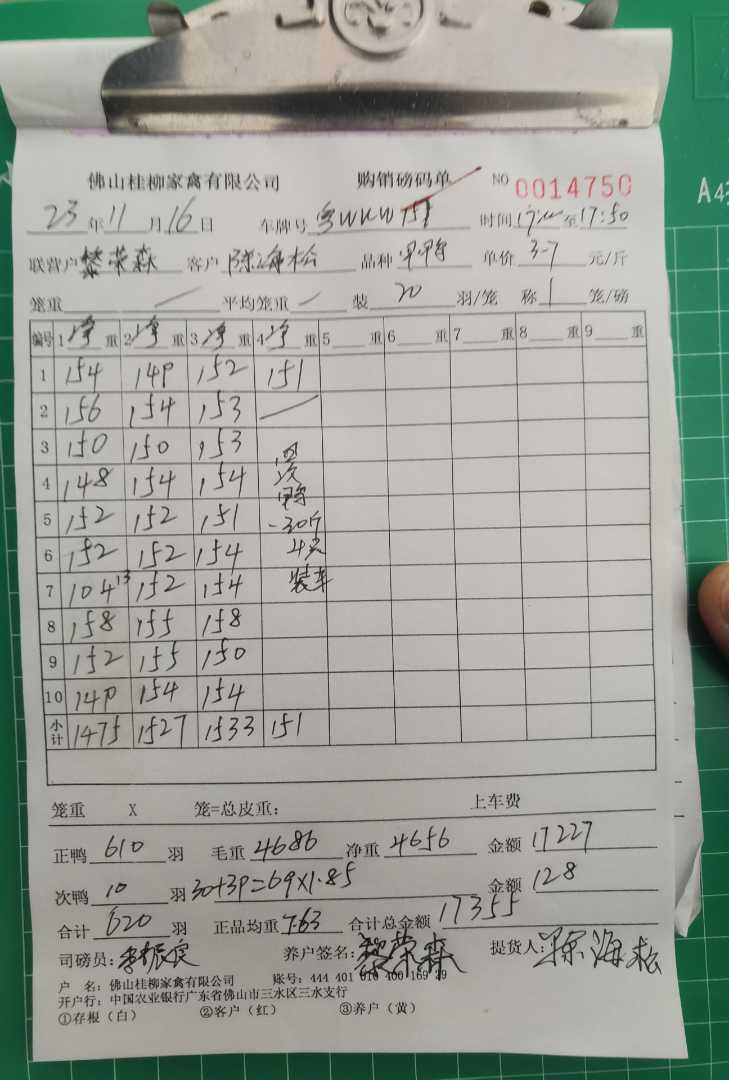 佛山桂柳家禽有限公司 购销磅码单 NO 0014750
23年11月16日 车牌号 粤WKW 时间 至17:50
联营户 黎荣森 客户 陈海松 品种 甲鸭 单价 3-7 元/斤
笼重 — 平均笼重 — 装 20 羽/笼 称 1 笼/磅
编号 1 净 重 2 净 重 3 净 重 4 净 重 5 重 6 重 7 重 8 重 9 重
1 154 149 152 151
2 156 154 153 —
3 150 150 153
4 148 154 154 次
5 152 152 151 -30斤
6 152 152 154
7 104 13 152 154 装车
8 158 155 158
9 152 155 150
10 149 154 154
小计 1475 1527 1533 151
笼重 X 笼=总皮重: 上车费
正鸭 610 羽 毛重 4686 净重 4656 金额 17227
次鸭 10 羽 30+39=69×1.85 金额 128
合计 620 羽 正品均重 7.63 合计总金额 17355
司磅员: 李振良 养户签名: 黎荣森 提货人: 陈海松
户 名: 佛山桂柳家禽有限公司 账号: 444 401 010 400 169 29
开户行: 中国农业银行广东省佛山市三水区三水支行
①存根（白） ②客户（红） ③养户（黄）
A4